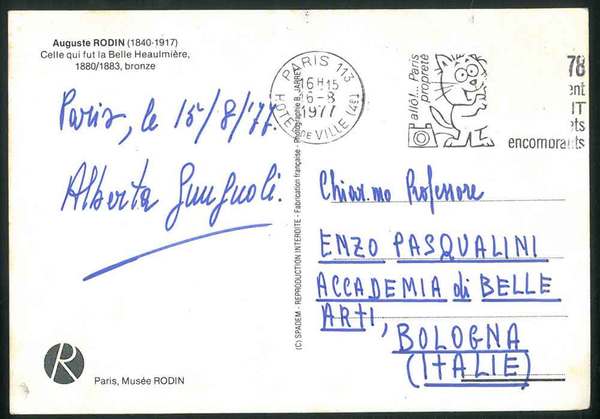 Auguste RODIN (1840-1917)
Celle qui fut la Belle Heaulmière,
1880/1883, bronze
Paris, le 15/8/77.
Alberta
Paris, Musée RODIN
(C) SPADEM - REPRODUCTION INTERDITE - Fabrication française - Photographie B. JARRET
PARIS 113
16H15
16-8
1977
HÔTEL DE VILLE (4E)
allô!... Paris
propreté
78
ent
IT
ets
encombrants
Chiar.mo Professore
ENZO PASQUALINI
ACCADEMIA di BELLE
ARTI,
BOLOGNA
(ITALIE)